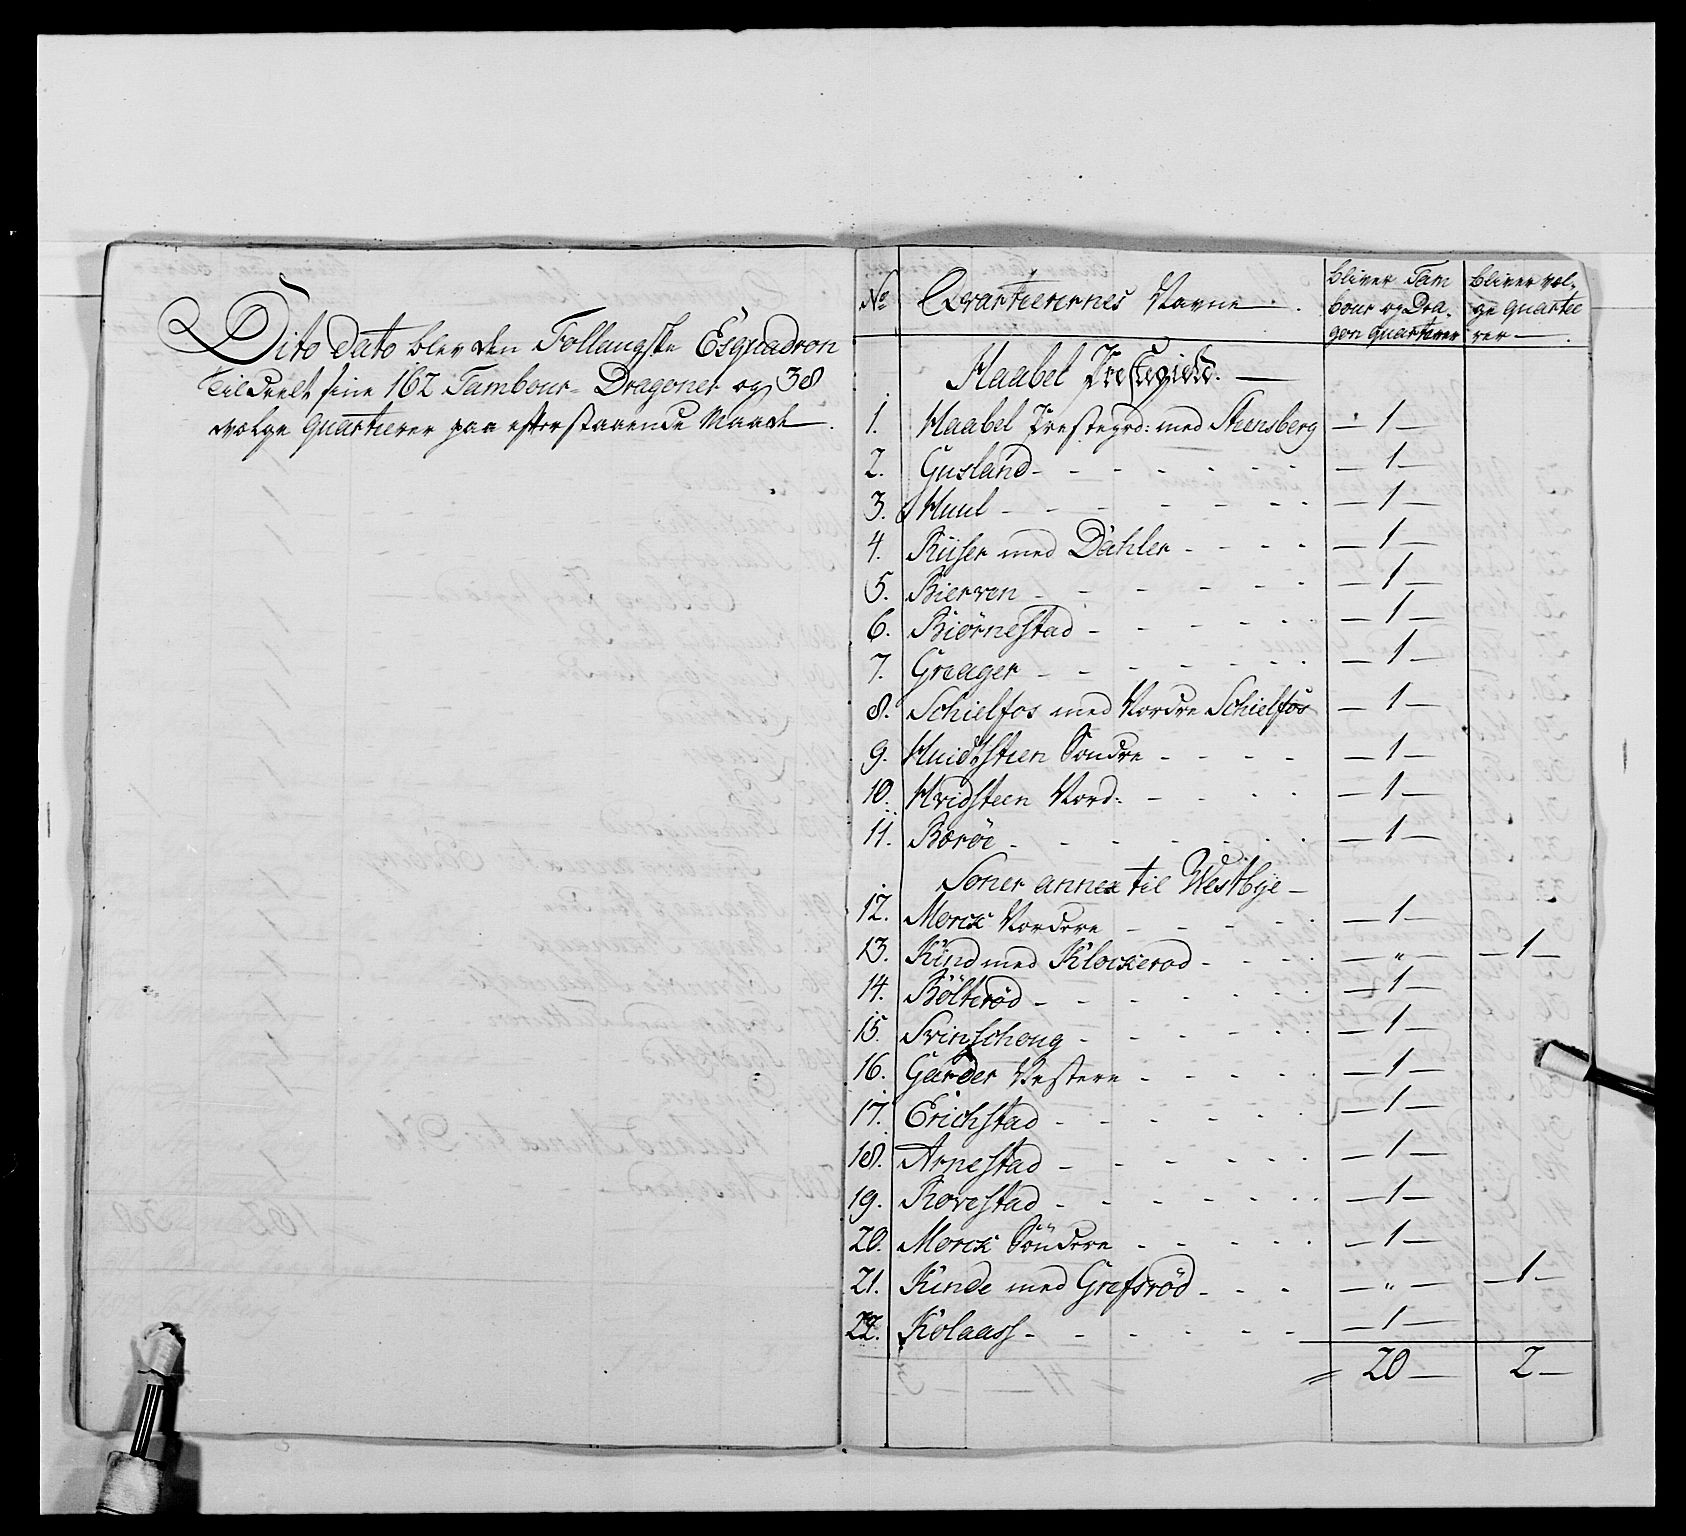 Dito Dato blev den Follaugske Esquadron
tildeelt sine 162 Tambour- Dragoner og 38
vælge Quarterer paa efterstaaende Maade.
No Qvarterernes Navne. bliver Tambour og Dragon quarterer bliver vælge quarterer
Haabel Prestegield.
1. Haabel Prestegrd: med Steensberg — 1 —
2. Gusland — 1 —
3. Huul — 1 —
4. Riiser med Dahler — 1 —
5. Bierven — 1 —
6. Biørnestad — 1 —
7. Greager — 1 —
8. Schielfos med Nordre Schielfos — 1 —
9. Huidtstien Søndre — 1 —
10. Hvidsteen Nord: — 1 —
11. Borøe — 1 —
Soner annex til Westbye —
12. Morck Nordere — 1 —
13. Kind med Klockerød — " — — 1 —
14. Bölterød — 1 —
15. Svinschoug — 1 —
16. Garder Vestere — 1 —
17. Erichstad — 1 —
18. Arnestad — 1 —
19. Rovestad — 1 —
20. Morck Söndere — 1 —
21. Kinde med Grefsröd — " — — 1 —
22. Kolaass — 1 —
20 — 2 —